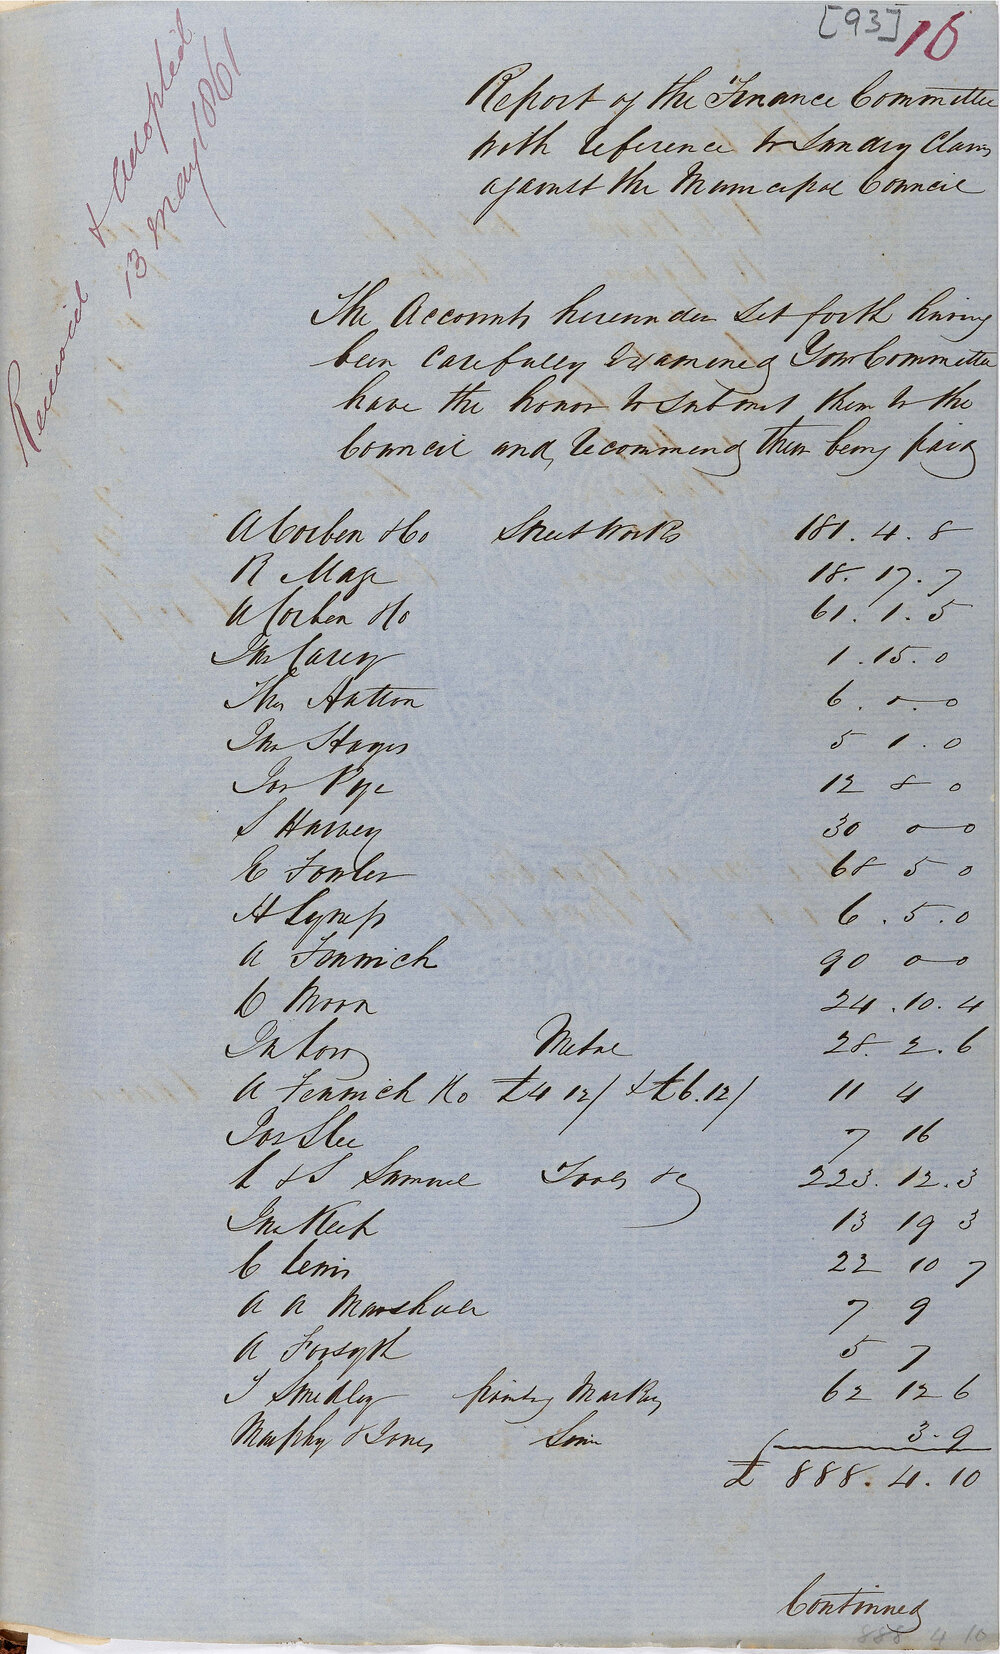 [93] 16
Received & adopted
13 May 1861
Report of the Finance Committee
with reference to Sundry Claims
against the Municipal Council
The Accounts hereunder set forth having
been carefully examined Your Committee
have the honor to submit them to the
Council and recommend them being paid
A Corben & Co Street Works 181. 4. 8
R Mage 18. 17. 7
A Corben & Co 61. 1. 5
Jno Carey 1. 15. 0
Thos Hatton 6. 0. 0
Jno Hayes 5 1. 0
Jas Pye 12 8 0
S Harvey 30 0 0
E Fowler 68 5 0
H 6. 5. 0
A Fenwick 90 0 0
C Moon 24. 10. 4
Jn Metal 28. 2. 6
A Fenwick & Co £4 12/ & £6. 12/ 11 4
Jas Slee 7 16
L & S Samuel Tools &c 223. 12. 3
Jno Keep 13 19 3
C Lewis 22 10 7
A A Marshall 7 9
A Forsyth 5 7
T Smedley printing Markets 62 12 6
Murphy & Jones 3. 9
£ 888. 4. 10
Continued
888 4 10